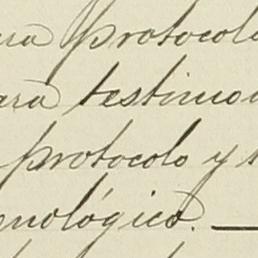 ra protocolo
ara testimon
protocolo y t
enológico.